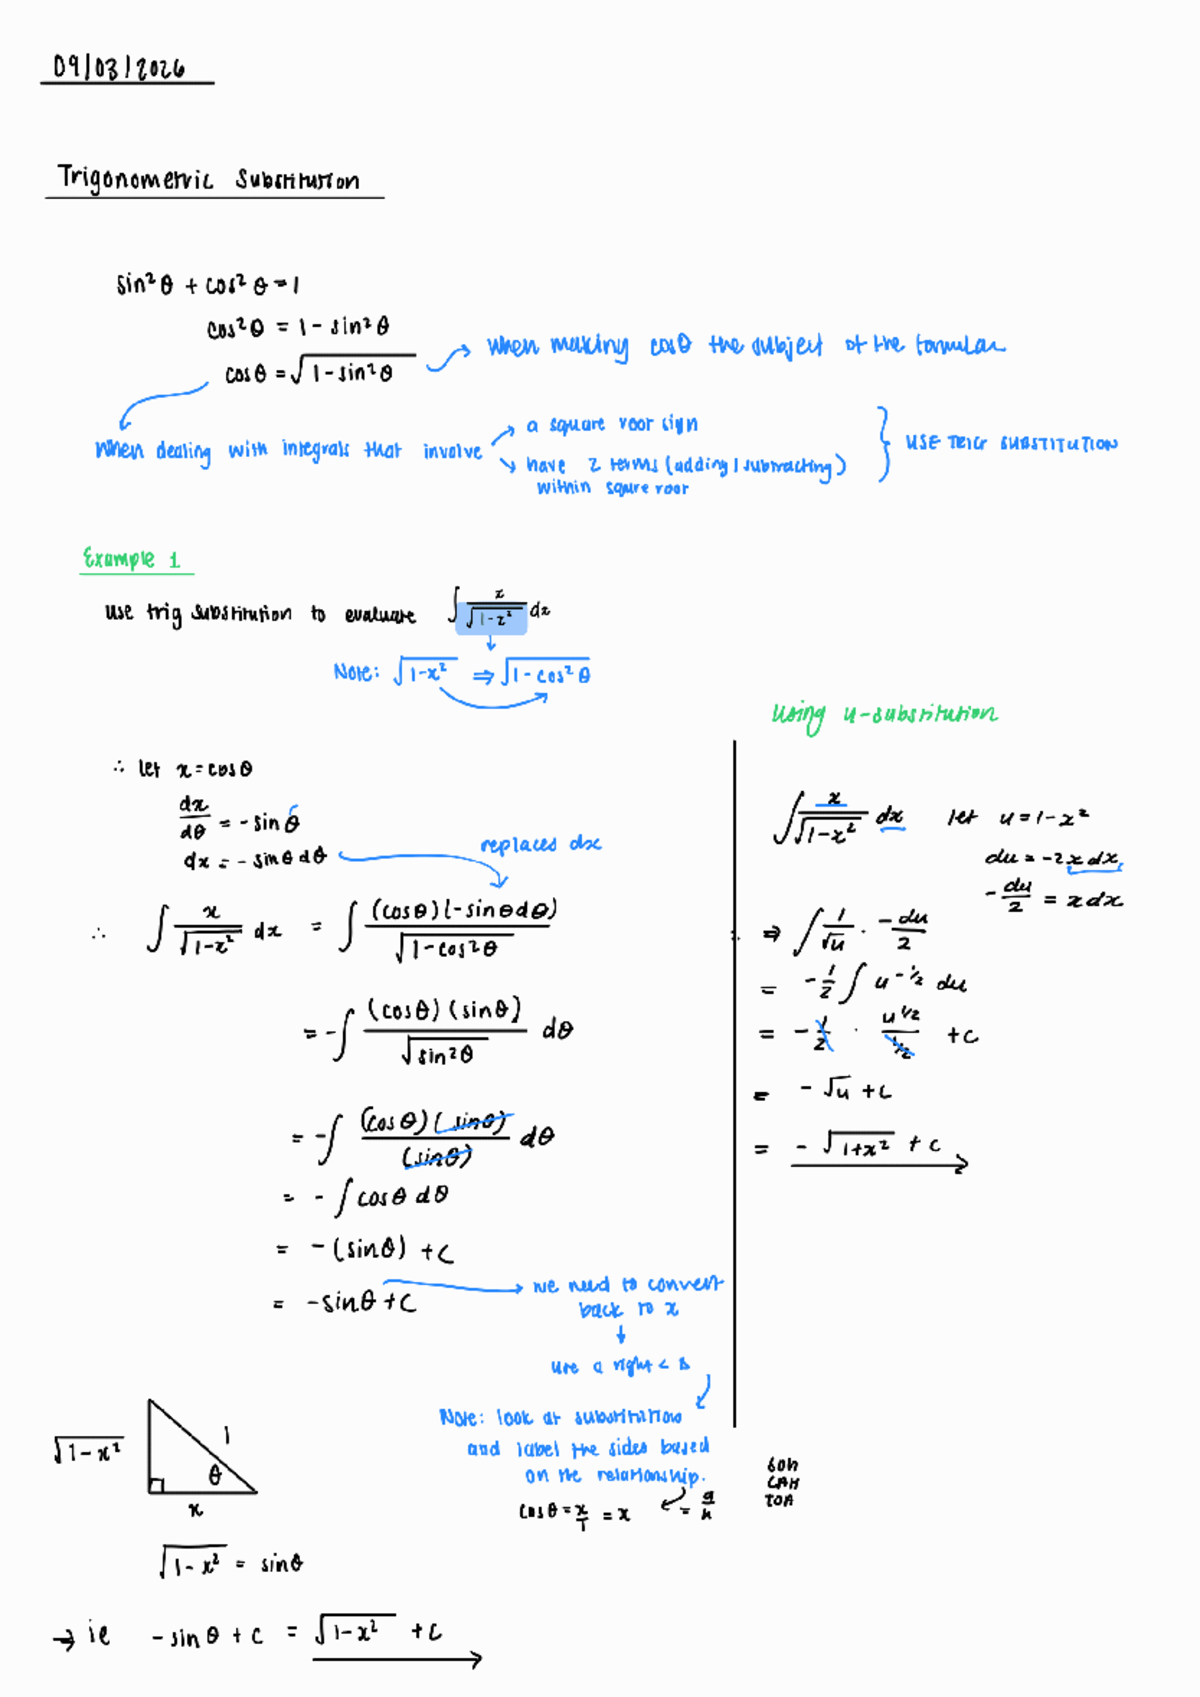 09/03/2026
Trigonometric Substitution
sin²θ + cos²θ = 1
cos²θ = 1 - sin²θ
cosθ = √(1 - sin²θ)
when making cosθ the subject of the formular
when dealing with integrals that involve
a square root sign
have 2 terms (adding / subtracting)
within squre root
USE TRIG SUBSTITUTION
Example 1
Use trig substitution to evaluate ∫ x/√(1-x²) dx
Note: √(1-x²) ⇒ √(1-cos²θ)
∴ let x = cosθ
dx/dθ = - sinθ
dx = - sinθ dθ
replaces dx
∴ ∫ x/√(1-x²) dx = ∫ (cosθ)(-sinθdθ)/√(1-cos²θ)
= -∫ (cosθ)(sinθ)/√(sin²θ) dθ
= -∫ (cosθ)(sinθ)/(sinθ) dθ
= - ∫ cosθ dθ
= - (sinθ) + c
= - sinθ + c
we need to convert
back to x
use a right < Δ
Note: look at substitution
and label the sides based
on the relationship.
cosθ = x/1 = x
= a/h
√(1-x²)
1
θ
x
√(1-x²) = sinθ
→ ie - sinθ + c = √(1-x²) + c
Using u-substitution
∫ x/√(1-x²) dx let u = 1-x²
du = -2x dx
- du/2 = x dx
∴ ⇒ ∫ 1/√u · -du/2
= - 1/2 ∫ u^-1/2 du
= - 1/2 · u^1/2/1/2 + c
= - √u + c
= - √(1+x²) + c
SOH
CAH
TOA